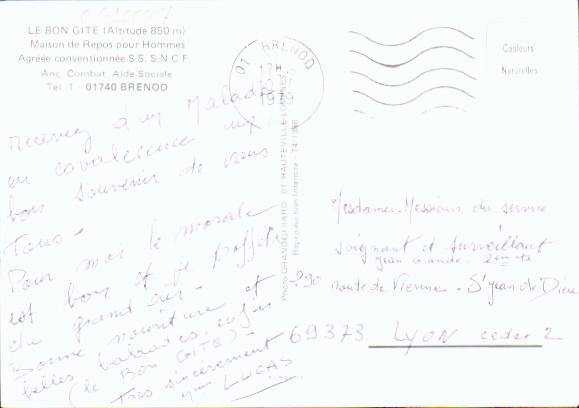 LE BON GITE (Altitude 850 m)
Maison de Repos pour Hommes
Agréée conventionnée S.S. S.N.C.F.
Anc. Combat. Aide Sociale
Tél. 1 - 01740 BRENOD
01 BRENOD
1979
Couleurs
Naturelles
recevez d'un Malade
en covalescence
bon souvenir de vous
Tous -
Pour moi le morale
est bon et je profite
du grand air -
Bonne nourriture et
belles balades, enfin
(le BON GITE) -
Très sincèrement
LUCAS
Photo GRANDGIRARD 01 HAUTEVILLE-LOMPNES
Reproduction Interdite
Mesdames - Messieurs du service
soignant et surveillant
Jean Grande - 2em
290 route de Vienne - St Jean de Dieu
69373 LYON cedex 2